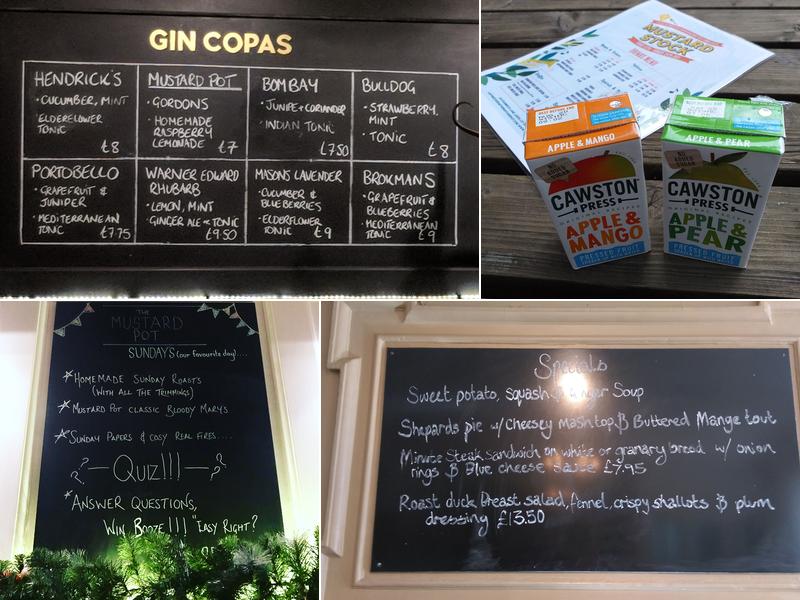 GIN COPAS
HENDRICK'S
• CUCUMBER, MINT
ELDERFLOWER
TONIC
£8
MUSTARD POT
• GORDONS
• HOMEMADE
RASPBERRY
LEMONADE £7
BOMBAY
• JUNIPER + CORIANDER
INDIAN TONIC
£7.50
BULLDOG
• STRAWBERRY,
MINT
• TONIC
£8
PORTOBELLO
• GRAPEFRUIT &
JUNIPER
• MEDITERRANEAN
TONIC £7.75
WARNER EDWARD
RHUBARB
• LEMON, MINT
GINGER ALE OR TONIC
£9.50
MASONS LAVENDER
• CUCUMBER &
BLUEBERRIES
• ELDERFLOWER
TONIC £9
BROKMANS
• GRAPEFRUIT &
BLUEBERRIES
• MEDITERRANEAN
TONIC £9
MUSTARD
STOCK
APPLE & MANGO
NO
ADDED
SUGAR
CAWSTON
PRESS
APPLE &
MANGO
PRESSED FRUIT
APPLE & PEAR
NO
ADDED
SUGAR
CAWSTON
PRESS
APPLE &
PEAR
PRESSED FRUIT
THE
MUSTARD
POT
SUNDAYS (our favourite day)....
HOMEMADE SUNDAY ROASTS
(WITH ALL THE TRIMMINGS)
MUSTARD POT CLASSIC BLOODY MARYS
SUNDAY PAPERS & COSY REAL FIRES....
? — QUIZ!!! — ?
ANSWER QUESTIONS,
WIN BOOZE!!! "EASY RIGHT?
Specials
Sweet potato, squash & ginger Soup
Shepards pie w/ Cheesey Mash top & Buttered Mange tout
Minute Steak Sandwich on white or granary bread w/ onion
rings & Blue cheese sauce £7.95
Roast duck breast salad, fennel, crispy shallots & plum
dressing £13.50